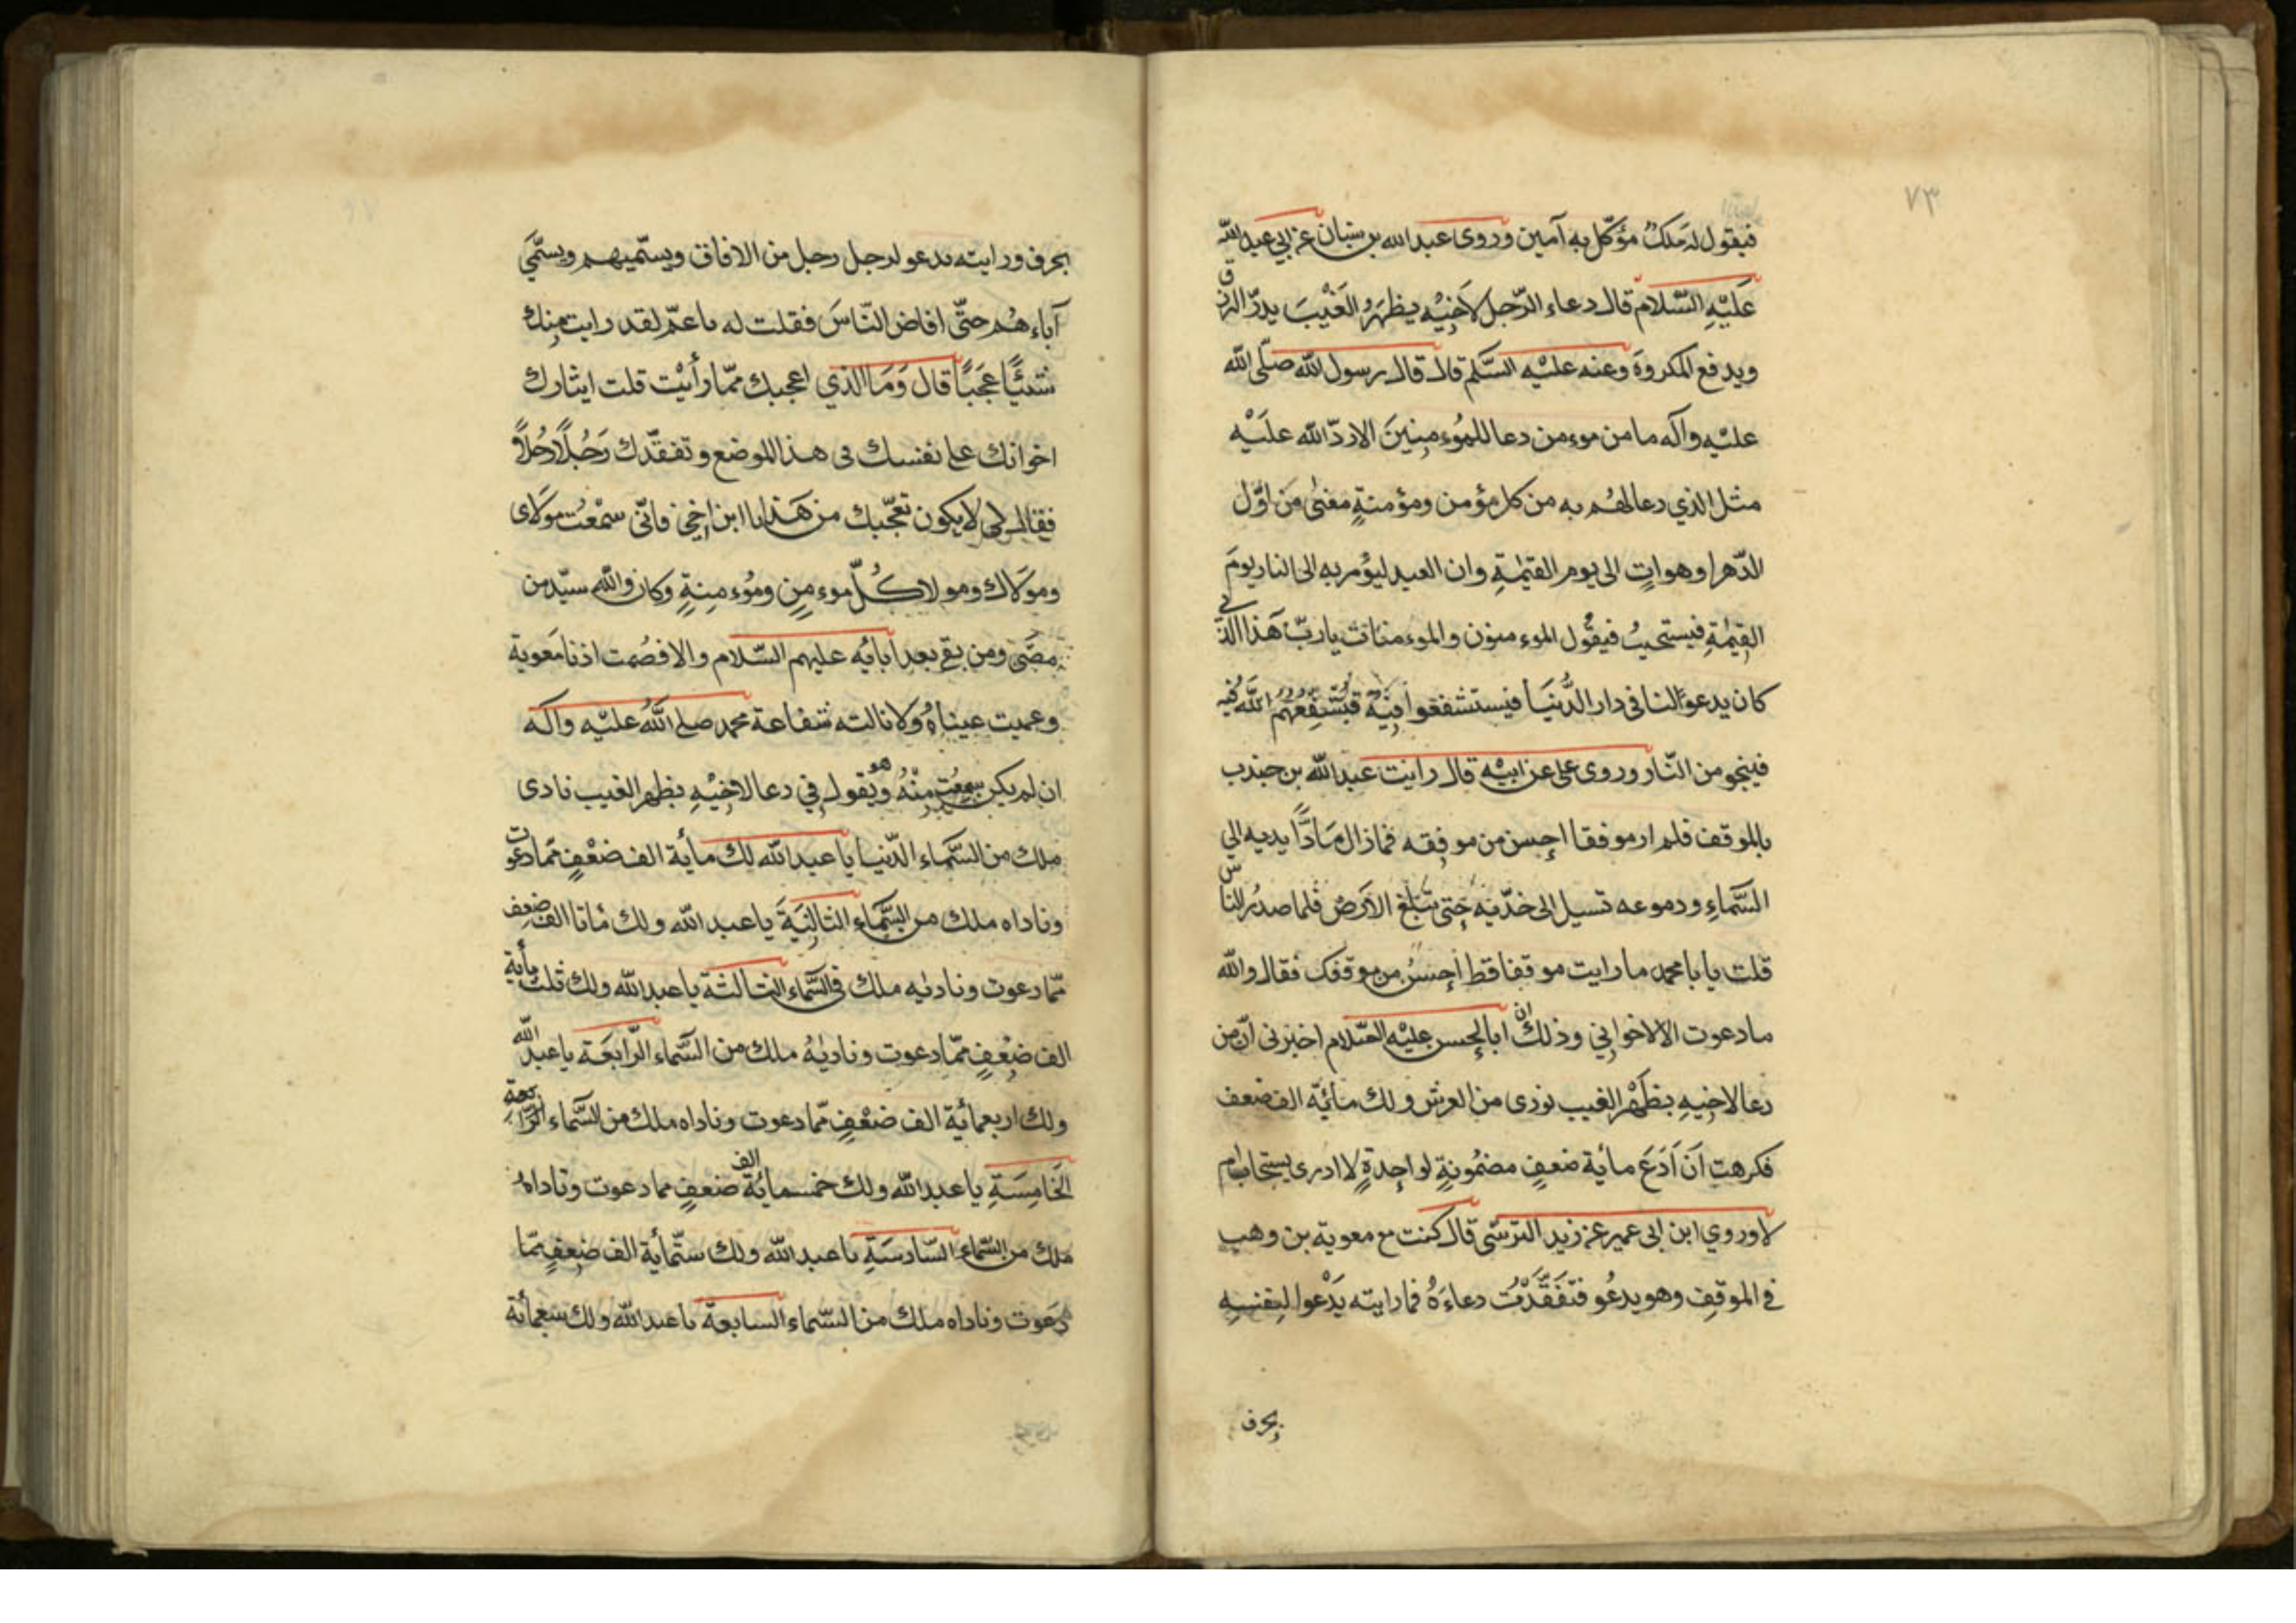 ٧٣
فيقول له مَلَكٌ مؤكّل به آمين وروى عبد الله بن سنان عن ابي عبد الله
عَلَيْهِ السَّلام قال دعاء الرّجل لاَخيْهِ بظَهْرِ الغَيْبَ يدرّ الرزق
ويدفع المكروهَ وعنه عليْه السَّلم قال قال رسول الله صلّى الله
عليْه وآله ما من موءمن دعا للموُءمِنِينَ الا ردّ الله عليَْه
مثل الذي دعا لهُم به من كل مؤمن ومؤمنةٍ مضىٰ مَن اوّل
الدّهر او هو اتٍ الى يوم القيٰمةِ وان العبد ليؤمر به الى النار يومَ
القِيٰمةِ فيستحبُ فيقُول الموءمنون والموءمنات يا ربّ هَذا الذي
كان يدعوَا لنا في دار الدُّنيَا فيستشفعوا فِيْهِ فيُشَفِّعُهُم اللهُ فيه
فينجو من النّار وروى على عن ابيْه قال رايت عبد الله بن جندب
بالموقف فلم ار موقفا احسن من موقفه فما زال مَادًّا يديه الي
السَّمآءِ ودموعه تسيل الى خدّيه حتى تَبلغ الاَرض فلما صدرُ الناس
قلت يا با محمد ما رايت موقفا قط احسنُ من موقفك فقال والله
ما دعوت الا لاخواني وذلك ان ابا الحسن عليْه السّلام اخبرنى انّ من
دعا لاخيهِ بظَهْر الغيب نودى من العرش ولك مائة الف ضعف
فكرهت اَن اَدَعَ مائة ضعفٍ مضمُونةٍ لواحِدةٍ لا ادرى يستجاب ام
لا وروي ابن ابى عمير عن زيد النرسّى قال كنت مع معوية بن وهب
في الموقِف وهو يدعُو فتفَقَّدْتُ دعاءَهُ فما رايته يَدْعوا لنفسِهِ
بحرف
بحرف ورايته يدعو لرجل رجل من الافاق ويسمّيهم ويسمّى
آباءهُم حتّى افاض النّاسَ فقلت له يا عمّ لقد رايت مِنك
شَيئًا عَجَبًا قال وَمَا الذي اعجبك ممّا رأيْت قلت ايثارك
اخوانك على نفسك فى هذا الموضع وتفقّدك رَجُلًا رجُلًا
فقال لي لا يكون تعجّبك من هَذا يا ابن اخي فانّى سمْعت مولاى
وموَلاك ومولا كُلّ موءمِنٍ ومُوءمِنةٍ وكان والله سيّد من
مضَى ومن بقي بعد آبائه عليهم السّلام والا فصُمت اذنا معوية
وعميت عيناهُ ولا نالته شفاعة محمد صلى اللهُ عليْه واله
ان لم يكن سمعْت مِنْهُ هو ويُقول في دعا لاخيْهِ بظهر الغيب نادى
ملك من السَّماء الدّنيا يا عبد الله لك مأية الف ضعْفٍ ممّا دعوت
وناداه ملك من السَّماءِ الثانيَةَ يا عبد الله ولك مأتا الف ضعف
ممّا دعوت وناديٰه ملك في السَّماء الثالثة يا عبد الله ولك ثلث مأية
الف ضعْفٍ ممّا دعوت وناديٰهُ ملك من السَّماء الرّابعَة يا عبد الله
ولك اربعمائة الف ضعْفٍ ممّا دعوت وناداه ملك من السَّماء الرّابعة
الخَامِسَةِ يا عبد الله ولك خمسمائة الف ضعْفٍ مما دعوت وناداهُ
ملك من السَّماء السّادسَةِ يا عبد الله ولك ستّمأية الف ضعفٍ ممّا
دَعوت وناداه ملك من السّماء السابعةَ يا عبد الله ولك سبعمأئة